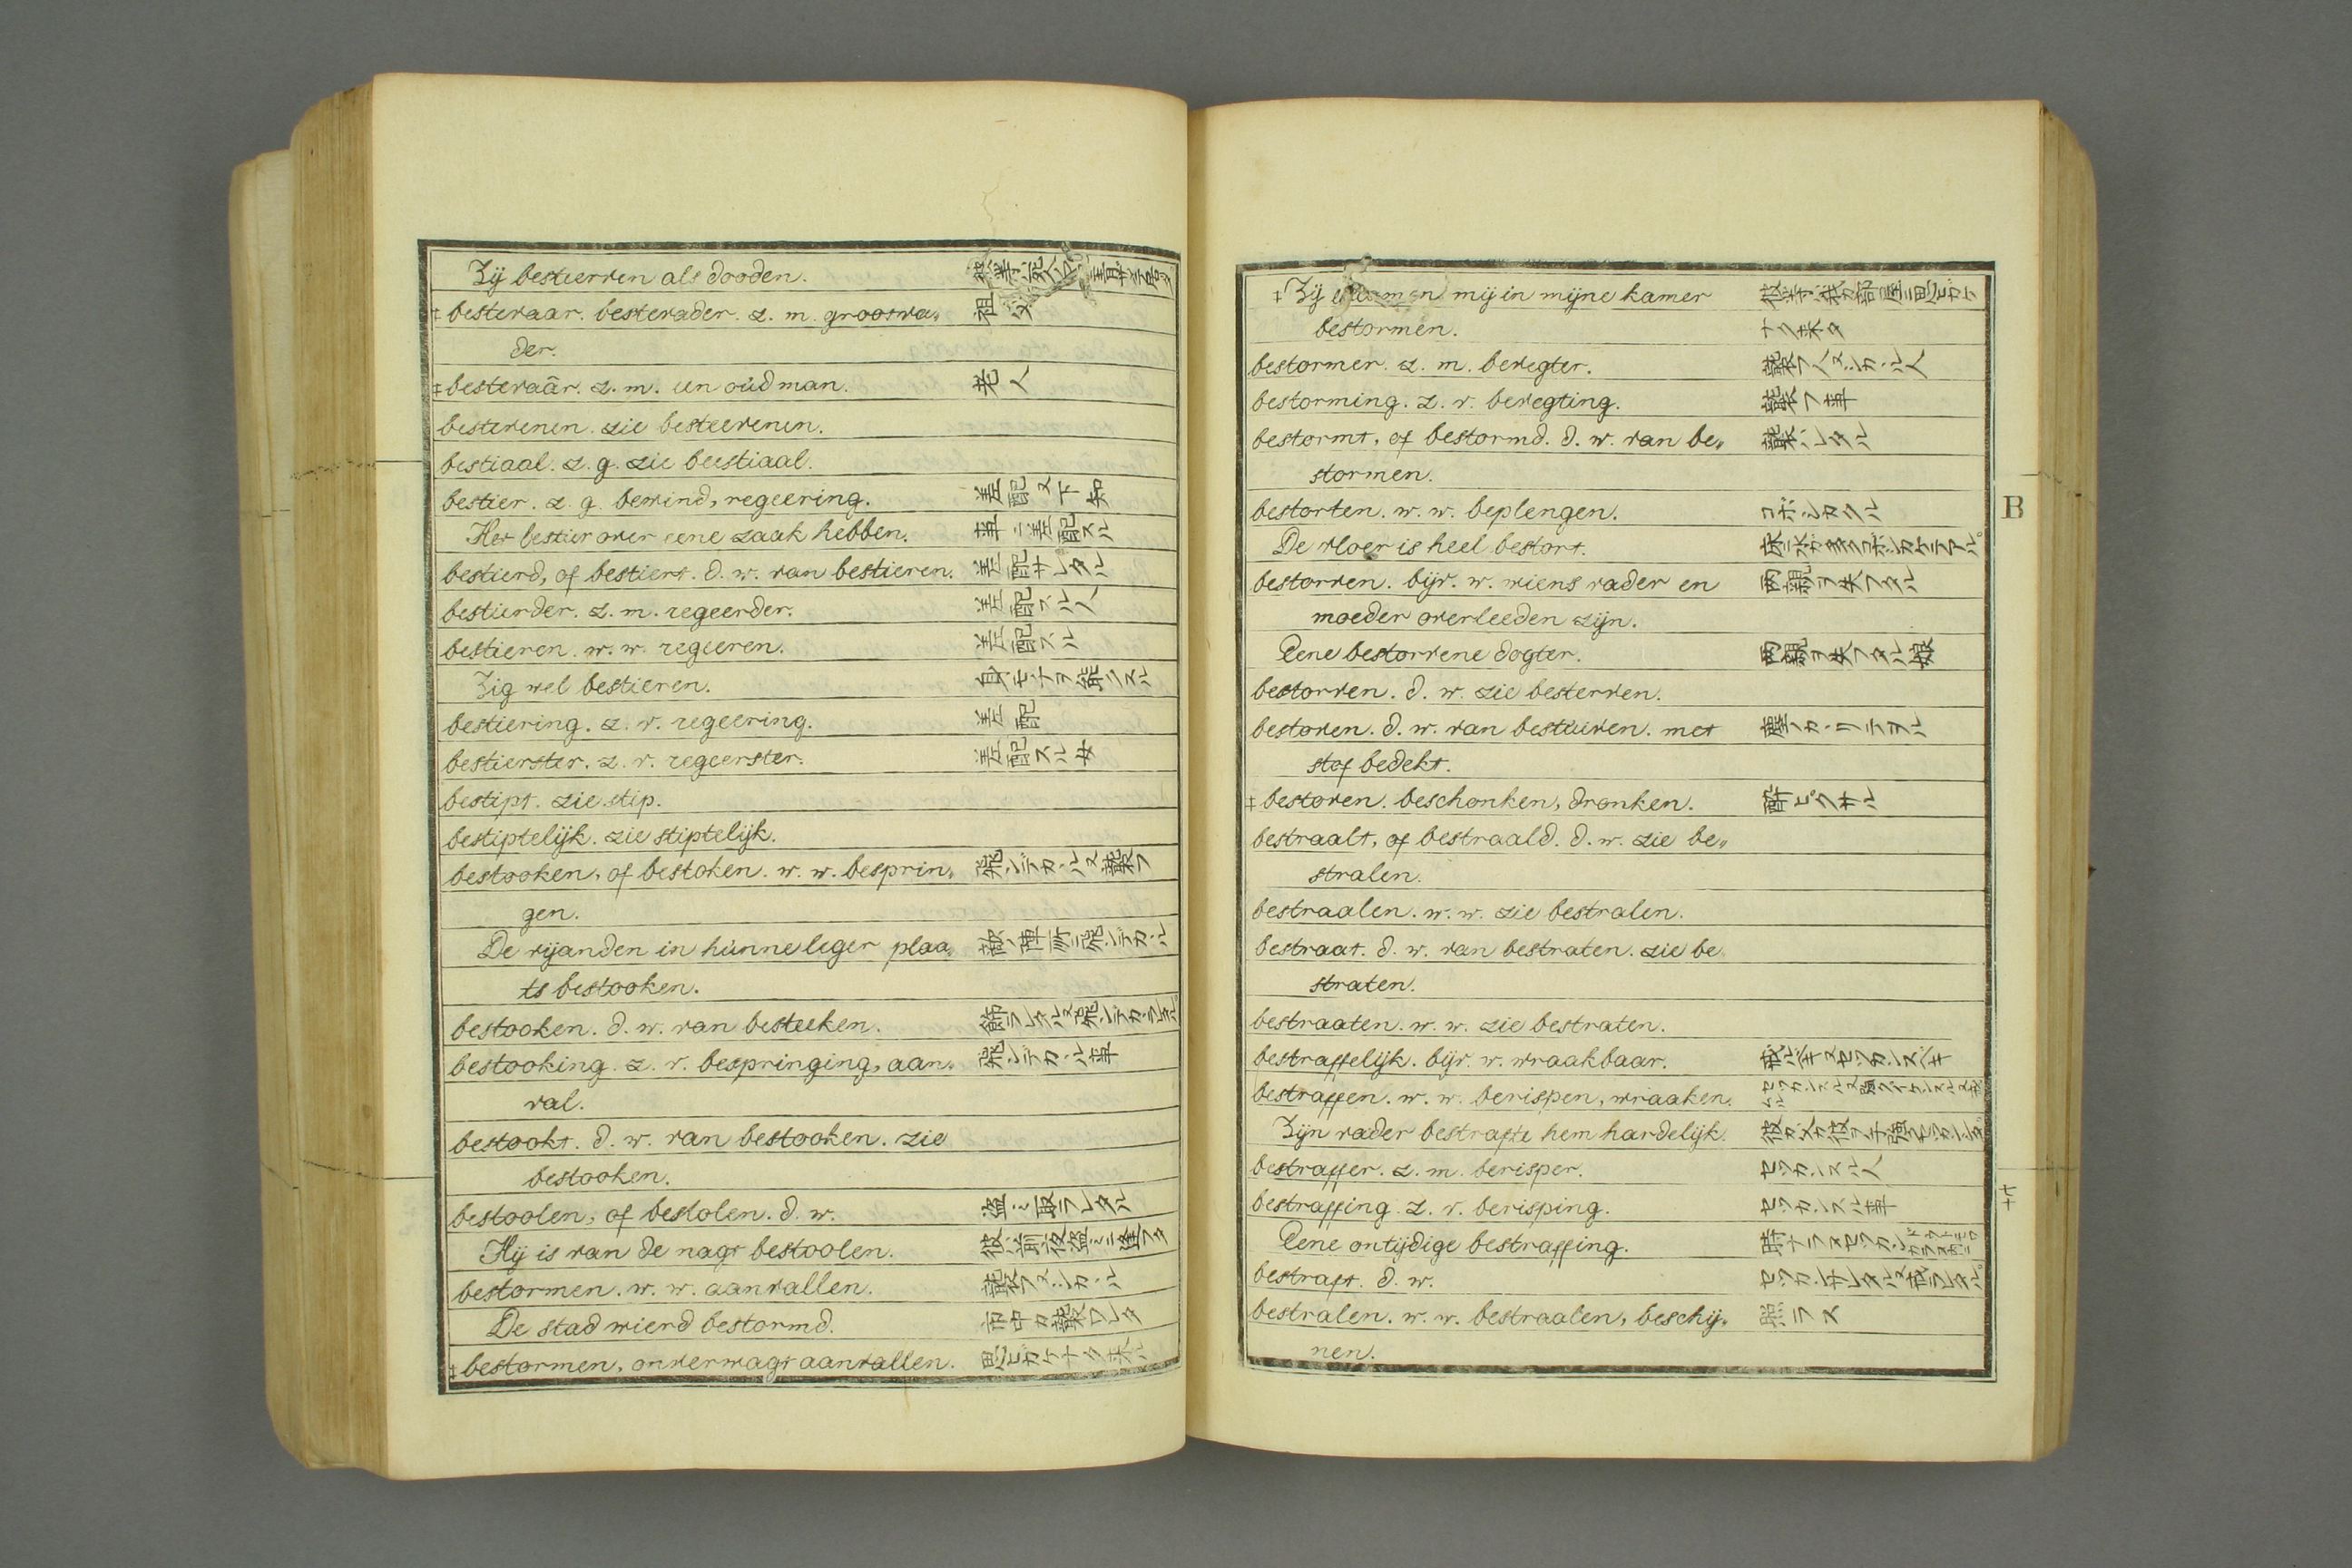 Zij bestierven als dooden.
‡ bestevaar. bestevader. z. m. grootva„ 祖父
der.
‡ bestevaâr. z. m. een oùd man. 老人
bestevenen. zie besteevenen.
bestiaal. z. g. zie beestiaal.
bestier. z. g. bewind, regeering. 差配又下知
Het bestier over eene zaak hebben. 事ニ差配スル
bestierd, of bestiert. d. w. van bestieren. 差配サレタル
bestierder. z. m. regeerder. 差配スル人
bestieren. w. w. regeeren. 差配スル
Zig wel bestieren. 身モチヲ能クスル
bestiering. z. v. regeering. 差配
bestierster. z. v. regeerster. 差配スル女
bestipt. zie stip.
bestiptelijk. zie stiptelijk.
bestooken, of bestoken. w. w. besprin„ 飛ンデカヽル又襲フ
gen.
De vijanden in hùnne leger plaa„ 敵ノ陣所ニ飛ンデカヽル
ts bestooken.
bestooken. d. w. van besteeken.
bestooking. z. v. bespringing, aan„ 飛ンデカヽル事
val.
bestookt. d. w. van bestooken. zie
bestooken.
bestoolen, of bestolen. d. w. 盗ミ取ラレタル
Hij is van de nagt bestoolen. 彼ハ前夜盗ミニ逢フタ
bestormen. w. w. aanvallen. 襲フ又シカヽル
De stad wierd bestormd. 市中ガ襲ワレタ
‡ bestormen, onverwagt aanvallen. 思ヒガケナク来ル
‡ Zij mij in mijne kamer 彼等ハ我ガ部屋ニ思ヒガケ
bestormen. ナク来タ
bestormer. z. m. bevegter. 襲フ人又シカヽル人
bestorming. z. v. bevegting. 襲フ事
bestormt, of bestormd. d. w. van be„ 襲ハレタル
stormen.
bestorten. w. w. beplengen. コボシカクル
De vloer is heel bestort.
bestorven. bijv. w. wiens vader en 両親ヲ失フタル
moeder overleeden zijn.
Eene bestorvene dogter. 両親ヲ失フタル娘
bestorven. d. w. zie besterven.
bestoven. d. w. van bestuiven. met 塵ノカヽリテヲル
stof bedekt.
‡ bestoven. beschonken, dronken. 酔ヒクサル
bestraalt, of bestraald. d. w. zie be„
stralen.
bestraalen. w. w. zie bestralen.
bestraat. d. w. van bestraten. zie be„
straten.
bestraaten. w. w. zie bestraten.
bestraffelijk. bijv. w. wraakbaar.
bestraffen. w. w. berispen, wraaken.
Zijn vader bestrafte hem hardelijk.
bestraffer. z. m. berisper. セツカンスル人
bestraffing. z. v. berisping. セツカンスル事
Eene ontijdige bestraffing.
bestraft. d. w.
bestralen. w. w. bestraalen, beschij„ 照ラス
nen.
B